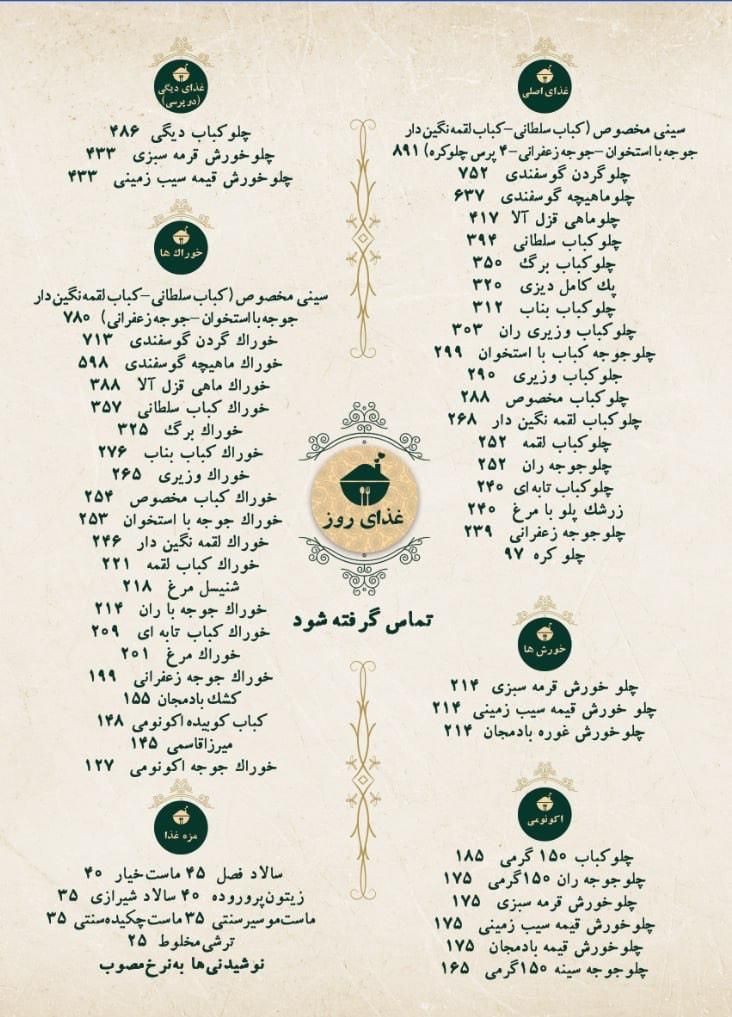 غذای اصلی
سینی مخصوص (کباب سلطانی-کباب لقمه نگین دار
جوجه با استخوان-جوجه زعفرانی-۴ پرس چلوکره) ۸۹۱
چلوگردن گوسفندی ۷۵۲
چلوماهیچه گوسفندی ۶۳۷
چلوماهی قزل آلا ۴۱۷
چلوکباب سلطانی ۳۹۴
چلوکباب برگ ۳۵۰
پک کامل دیزی ۳۲۰
چلوکباب بناب ۳۱۲
چلوکباب وزیری ران ۳۰۳
چلوجوجه کباب با استخوان ۲۹۹
جلوکباب وزیری ۲۹۰
چلوکباب مخصوص ۲۸۸
چلوکباب لقمه نگین دار ۲۶۸
چلوکباب لقمه ۲۵۲
چلوجوجه ران ۲۵۲
چلوکباب تابه ای ۲۴۰
زرشک پلو با مرغ ۲۴۰
چلوجوجه زعفرانی ۲۳۹
چلو کره ۹۷
خورش ها
چلو خورش قرمه سبزی ۲۱۴
چلو خورش قیمه سیب زمینی ۲۱۴
چلوخورش غوره بادمجان ۲۱۴
اکونومی
چلوکباب ۱۵۰ گرمی ۱۸۵
چلوجوجه ران ۱۵۰گرمی ۱۷۵
چلوخورش قرمه سبزی ۱۷۵
چلوخورش قیمه سیب زمینی ۱۷۵
چلوخورش قیمه بادمجان ۱۷۵
چلوجوجه سینه ۱۵۰گرمی ۱۶۵
غذای روز
تماس گرفته شود
غذای دیگی
(دوپرسی)
چلوکباب دیگی ۴۸۶
چلوخورش قرمه سبزی ۴۳۳
چلوخورش قیمه سیب زمینی ۴۳۳
خوراک ها
سینی مخصوص (کباب سلطانی-کباب لقمه نگین دار
جوجه با استخوان-جوجه زعفرانی) ۷۸۰
خوراک گردن گوسفندی ۷۱۳
خوراک ماهیچه گوسفندی ۵۹۸
خوراک ماهی قزل آلا ۳۸۸
خوراک کباب سلطانی ۳۵۷
خوراک برگ ۳۲۵
خوراک کباب بناب ۲۷۶
خوراک وزیری ۲۶۵
خوراک کباب مخصوص ۲۵۴
خوراک جوجه با استخوان ۲۵۳
خوراک لقمه نگین دار ۲۴۶
خوراک کباب لقمه ۲۲۱
شنیسل مرغ ۲۱۸
خوراک جوجه با ران ۲۱۴
خوراک کباب تابه ای ۲۰۹
خوراک مرغ ۲۰۱
خوراک جوجه زعفرانی ۱۹۹
کشک بادمجان ۱۵۵
کباب کوبیده اکونومی ۱۴۸
میرزاقاسمی ۱۴۵
خوراک جوجه اکونومی ۱۲۷
مزه غذا
سالاد فصل ۴۵ ماست خیار ۴۰
زیتون پرورو‌ده ۴۰ سالاد شیرازی ۳۵
ماست موسیر سنتی ۳۵ ماست چکیده سنتی ۳۵
ترشی مخلوط ۲۵
نوشیدنی ها به نرخ مصوب